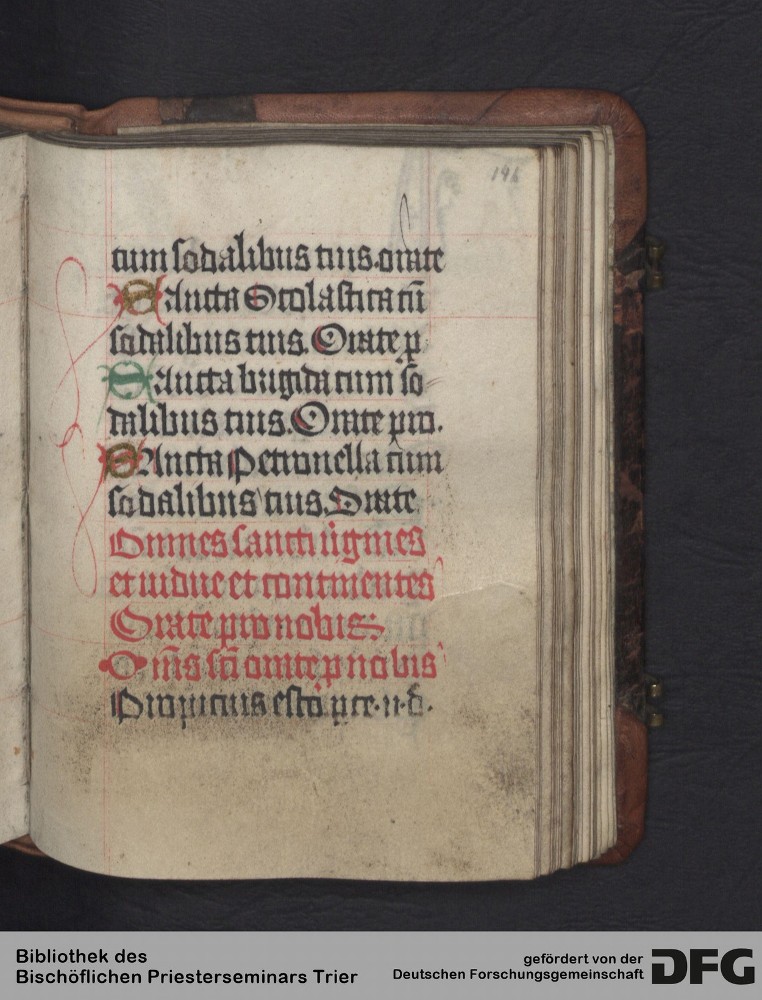 196
cum sodalibus tuis. orate
Sancta Scolastica cū
sodalibus tuis. Orate p̄
Sancta brigida cum so
dalibus tuis. Orate pro.
SAncta Petronella cum
sodalibus tuis. Orate
Omnes sancti ūgines
et uidue et continentes
Orate pro nobis:
Oīn̄s sc̄i orate p̄ nobis
Propicius esto. pce. n. d.
Bibliothek des
Bischöflichen Priesterseminars Trier
gefördert von der
Deutschen Forschungsgemeinschaft
DFG